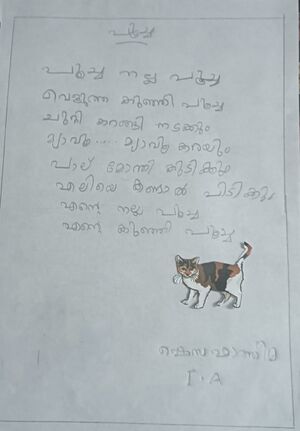 പൂച്ച
പൂച്ച നല്ല പൂച്ച
വെളുത്ത കുഞ്ഞി പൂച്ച
ചുറ്റി കറങ്ങി നടക്കും
മ്യാവൂ..... മ്യാവൂ കരയും
പാല് മോന്തി കുടിക്കും
എലിയെ കണ്ടാൽ പിടിക്കും
എന്റെ നല്ല പൂച്ച
എന്റെ കുഞ്ഞി പൂച്ച
I.A